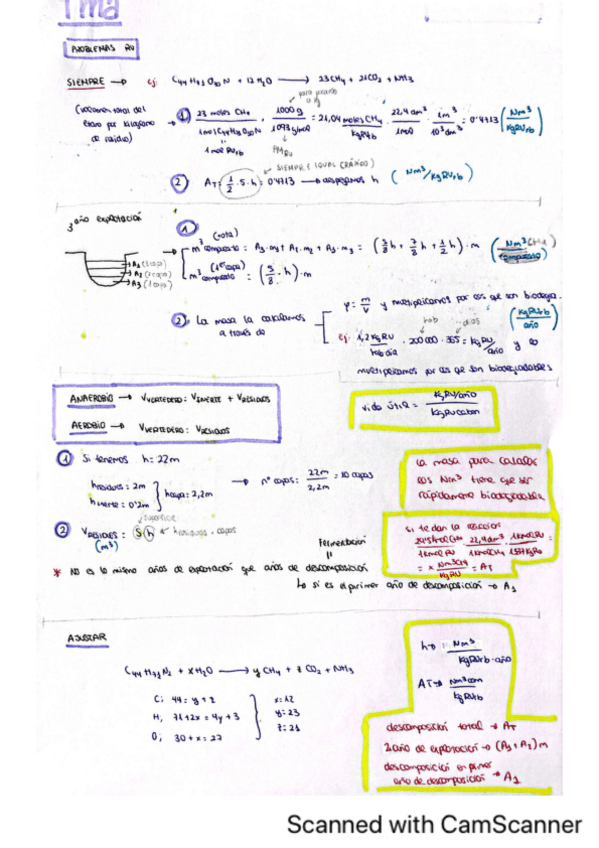 TMA
PROBLEMAS RU
SIEMPRE → ej: C44 H73 O30 N + 12 H2O → 23 CH4 + 21 CO2 + NH3
(volumen total del
por kilogramo
de residuo)
① 23 moles CH4 / 1 mol · 1000 g / 1093 g/mol = 21,04 moles CH4 / kgRUrb · 22,4 dm³ / 1 mol · 1m³ / 10³ dm³ = 0'4713 (Nm³ / kgRUrb)
para pasarlo a kg
1 mol RUrb
PMRU
SIEMPRE IGUAL (RÁPIDO)
② AT = 1/2 · 5 · h = 0'4713 → despejamos h (Nm³/kgRUrb)
3er año explotación
①
m³ compuesto (total): A3·m1 + A2·m2 + A1·m3 = (5/8 h + 7/8 h + 1/2 h) · m (Nm³ CH4)
m³ compuesto (1ª capa) = (5/8 · h) · m
A1 (1 capa)
A2 (2 capa)
A3 (1 capa)
② La masa la calculamos
a través de
φ = m/V y multiplicamos por los que son biodegra. (kgRUrb / año)
ej: 1,2 kgRU / hab día · 200 000 · 365 = kgRU / año y lo
hab
días
multiplicamos por los que son biodegradables
ANAEROBIO → VVERTEDERO: VINERTE + VRESIDUOS
AEROBIO → VVERTEDERO: VRESIDUOS
vida útil = kgRU/año / kgRU caben
① Si tenemos h = 22m
hresiduos = 2m
hinerte = 0'2m
hcapa = 2,2m
→ nº capas: 22m / 2,2m = 10 capas
La masa para calcular
los Nm³ tiene que ser
rápidamente biodegradables
② VRESIDUOS: S·h ← hresiduos · capas
superficie
(m³)
si te dan la reacción
= x Nm³ CH4 / kgRU = AT
Fermentación
* No es lo mismo años de explotación que años de descomposición
Lo si es el primer año de descomposición → A1
AJUSTAR
C44 H73 N + x H2O → y CH4 + z CO2 + NH3
C; 44 = y + z
H; 71 + 2x = 4y + 3
O; 30 + x = 2z
x = 12
y = 23
z = 21
h → Nm³ / kgRUrb · año
AT → Nm³ / kgRUrb
descomposición total → AT
2 año de explotación → (A1 + A2) m
descomposición en primer
año de descomposición → A1
Scanned with CamScanner